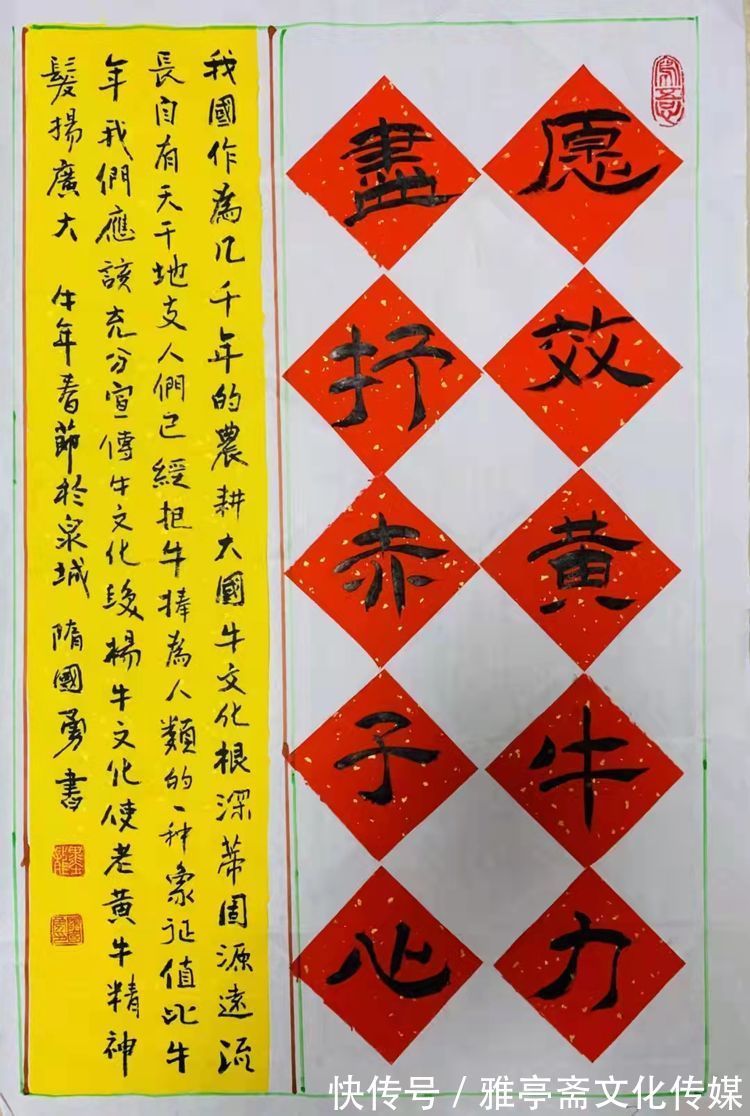 愿效黄牛力
盡抒赤子心
我國作為几千年的農耕大國牛文化根深蒂固源遠流
長自有天干地支人們已經把牛捧為人類的一种象征值此牛
年我們應該充分宣傳牛文化發揚牛文化使老黄牛精神
髮揚廣大 牛年春節於泉城 隋國勇書
快传号 / 雅亭斋文化传媒